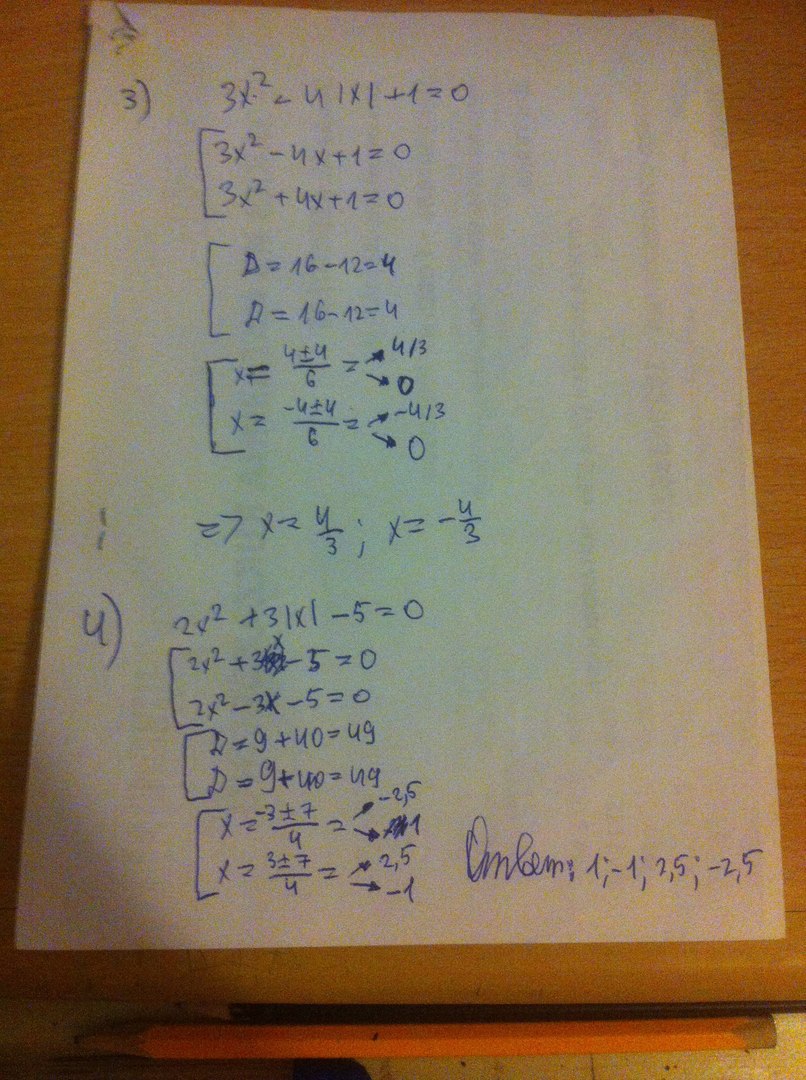 3) 3x² - 4|x| + 1 = 0
3x² - 4x + 1 = 0
3x² + 4x + 1 = 0
D = 16 - 12 = 4
D = 16 - 12 = 4
x = 4±4/6 = 4/3 0
x = -4±4/6 = -4/3 0
=> x = 4/3; x = -4/3
4) 2x² + 3|x| - 5 = 0
2x² + 3x - 5 = 0
2x² - 3x - 5 = 0
D = 9 + 40 = 49
D = 9 + 40 = 49
x = -3±7/4 = -2,5 1
x = 3±7/4 = 2,5 -1
Ответ: 1; -1; 2,5; -2,5